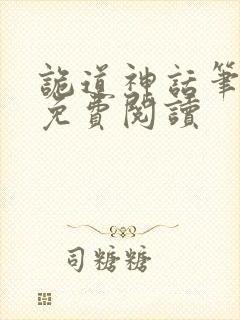 詭道神話筆
免費閱讀
司糖糖